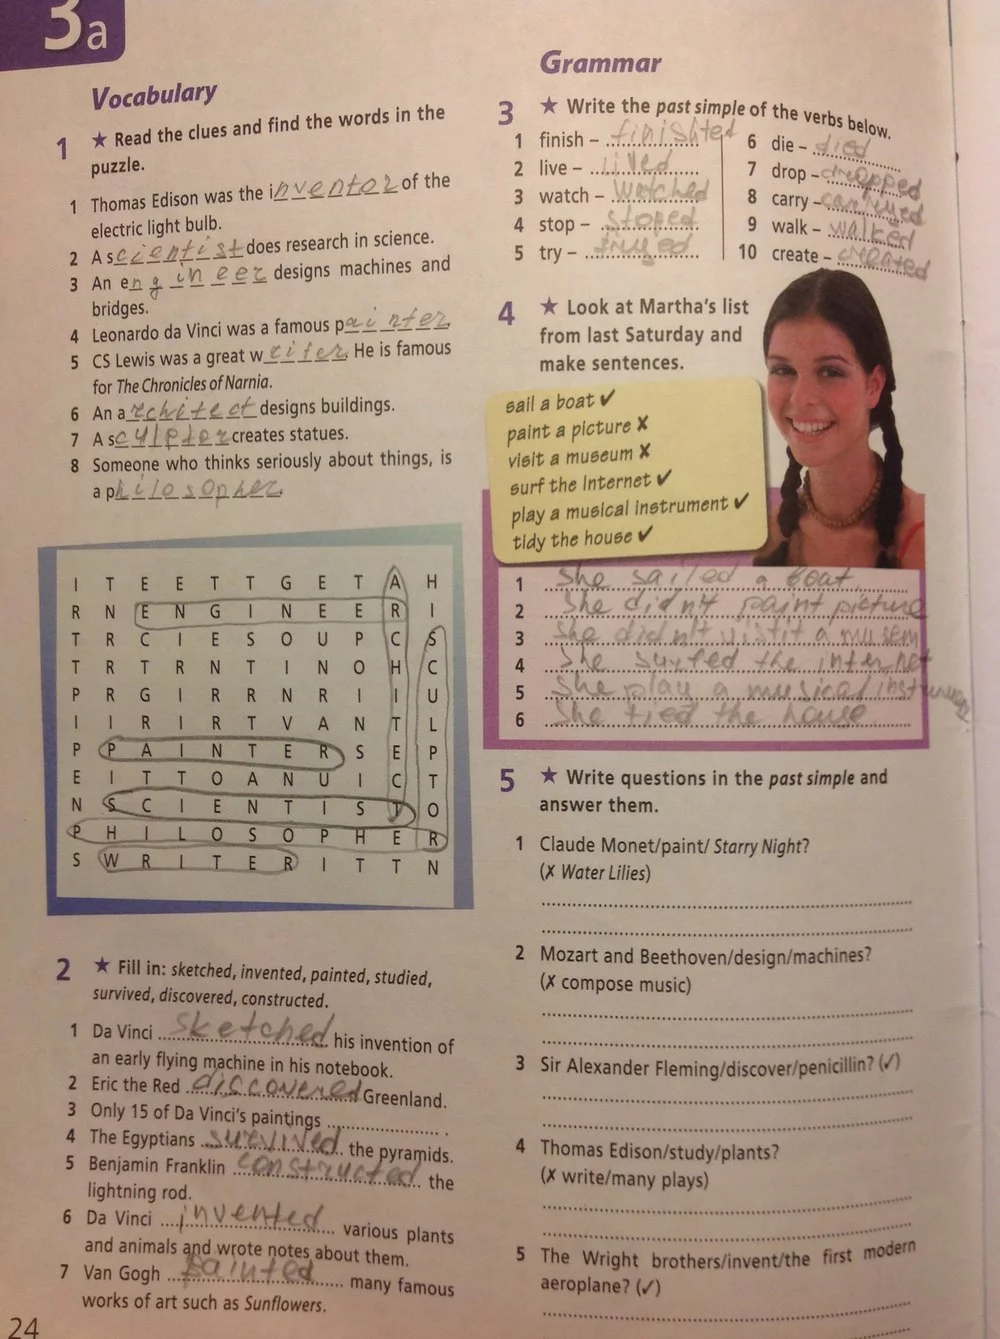 3a
Vocabulary
1 ★ Read the clues and find the words in the
puzzle.
1 Thomas Edison was the inventor of the
electric light bulb.
2 A scientist does research in science.
3 An engineer designs machines and
bridges.
4 Leonardo da Vinci was a famous painter.
5 CS Lewis was a great writer. He is famous
for The Chronicles of Narnia.
6 An architect designs buildings.
7 A sculptor creates statues.
8 Someone who thinks seriously about things, is
a philosopher.
I T E E T T G E T A H
R N E N G I N E E R I
T R C I E S O U P C S
T R T R N T I N O H C
P R G I R R N R I I U
I I R I R T V A N T L
P P A I N T E R S E P
E I T T O A N U I C T
N S C I E N T I S T O
P H I L O S O P H E R
S W R I T E R I T T N
2 ★ Fill in: sketched, invented, painted, studied,
survived, discovered, constructed.
1 Da Vinci sketched his invention of
an early flying machine in his notebook.
2 Eric the Red discovered Greenland.
3 Only 15 of Da Vinci's paintings .
4 The Egyptians survived the pyramids.
5 Benjamin Franklin constructed the
lightning rod.
6 Da Vinci invented various plants
and animals and wrote notes about them.
7 Van Gogh painted many famous
works of art such as Sunflowers.
24
Grammar
3 ★ Write the past simple of the verbs below.
1 finish – finishted
2 live – lived
3 watch – watched
4 stop – stoped
5 try –
6 die – died
7 drop – dropped
8 carry –
9 walk – walked
10 create – created
4 ★ Look at Martha's list
from last Saturday and
make sentences.
sail a boat ✔
paint a picture ✘
visit a museum ✘
surf the Internet ✔
play a musical instrument ✔
tidy the house ✔
1 She sailed a boat.
2 She didn't paint picture
3 She didn't vistit a musem
4 She surfed the internet
5 She play a musical
6 She tied the house.
5 ★ Write questions in the past simple and
answer them.
1 Claude Monet/paint/ Starry Night?
(✗ Water Lilies)
2 Mozart and Beethoven/design/machines?
(✗ compose music)
3 Sir Alexander Fleming/discover/penicillin? (✓)
4 Thomas Edison/study/plants?
(✗ write/many plays)
5 The Wright brothers/invent/the first modern
aeroplane? (✓)